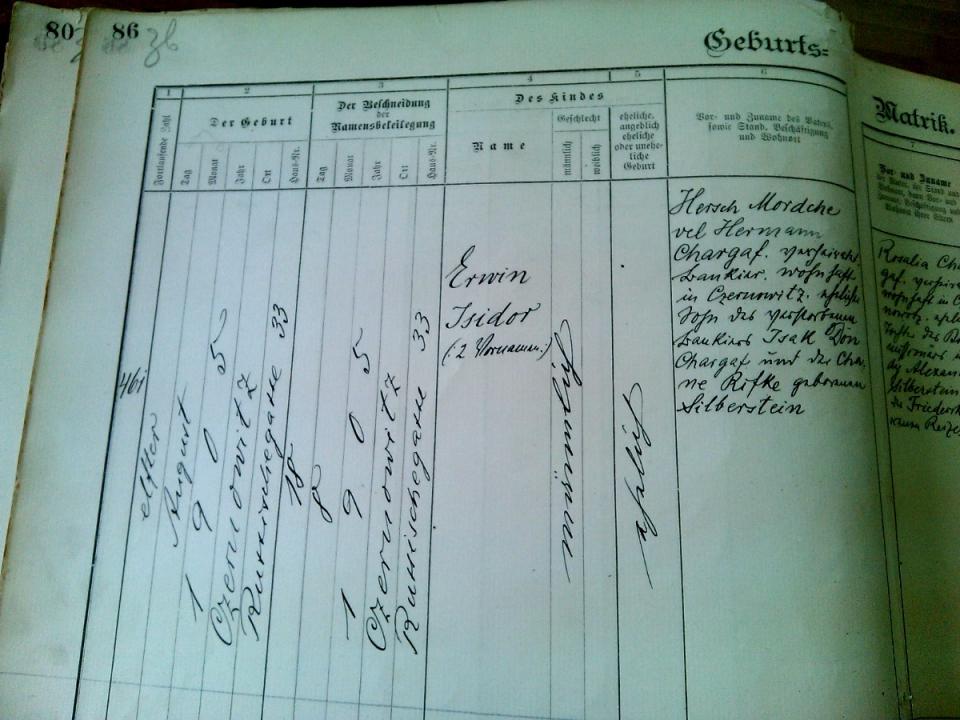 80
86
36
Geburts=
1
2
3
4
5
6
Fortlaufende Zahl
Der Geburt
Tag
Monat
Jahr
Ort
Haus-Nr.
Der Beschneidung
der
Namensbeilegung
Tag
Monat
Jahr
Ort
Haus-Nr.
Des Kindes
Name
Geschlecht
männlich
weiblich
eheliche,
angeblich
eheliche
oder unehe-
liche
Geburt
Vor- und Zuname des Vaters,
sowie Stand, Beschäftigung
und Wohnort
461
elften
August
1905
Czernowitz
Russischegasse 33
18
8
1905
Czernowitz
Russischegasse 33
Erwin
Isidor
(: 2 Vornamen :)
männlich
ehelich
Hersch Mordche
vel Hermann
Chargaf. verheiratet
Bankier. wohnhaft
in Czernowitz. eheliche
Sohn des verstorbenen
Bankiers Isak Don
Chargaf und der Cha-
ne Rifke geborenen
Silberstein
Matrik.
7
Vor- und Zuname
Rosalia Cha
gaf. verheira
wohnhaft in C
nowitz. ehel
Tochter des
Alexan
Silberstein